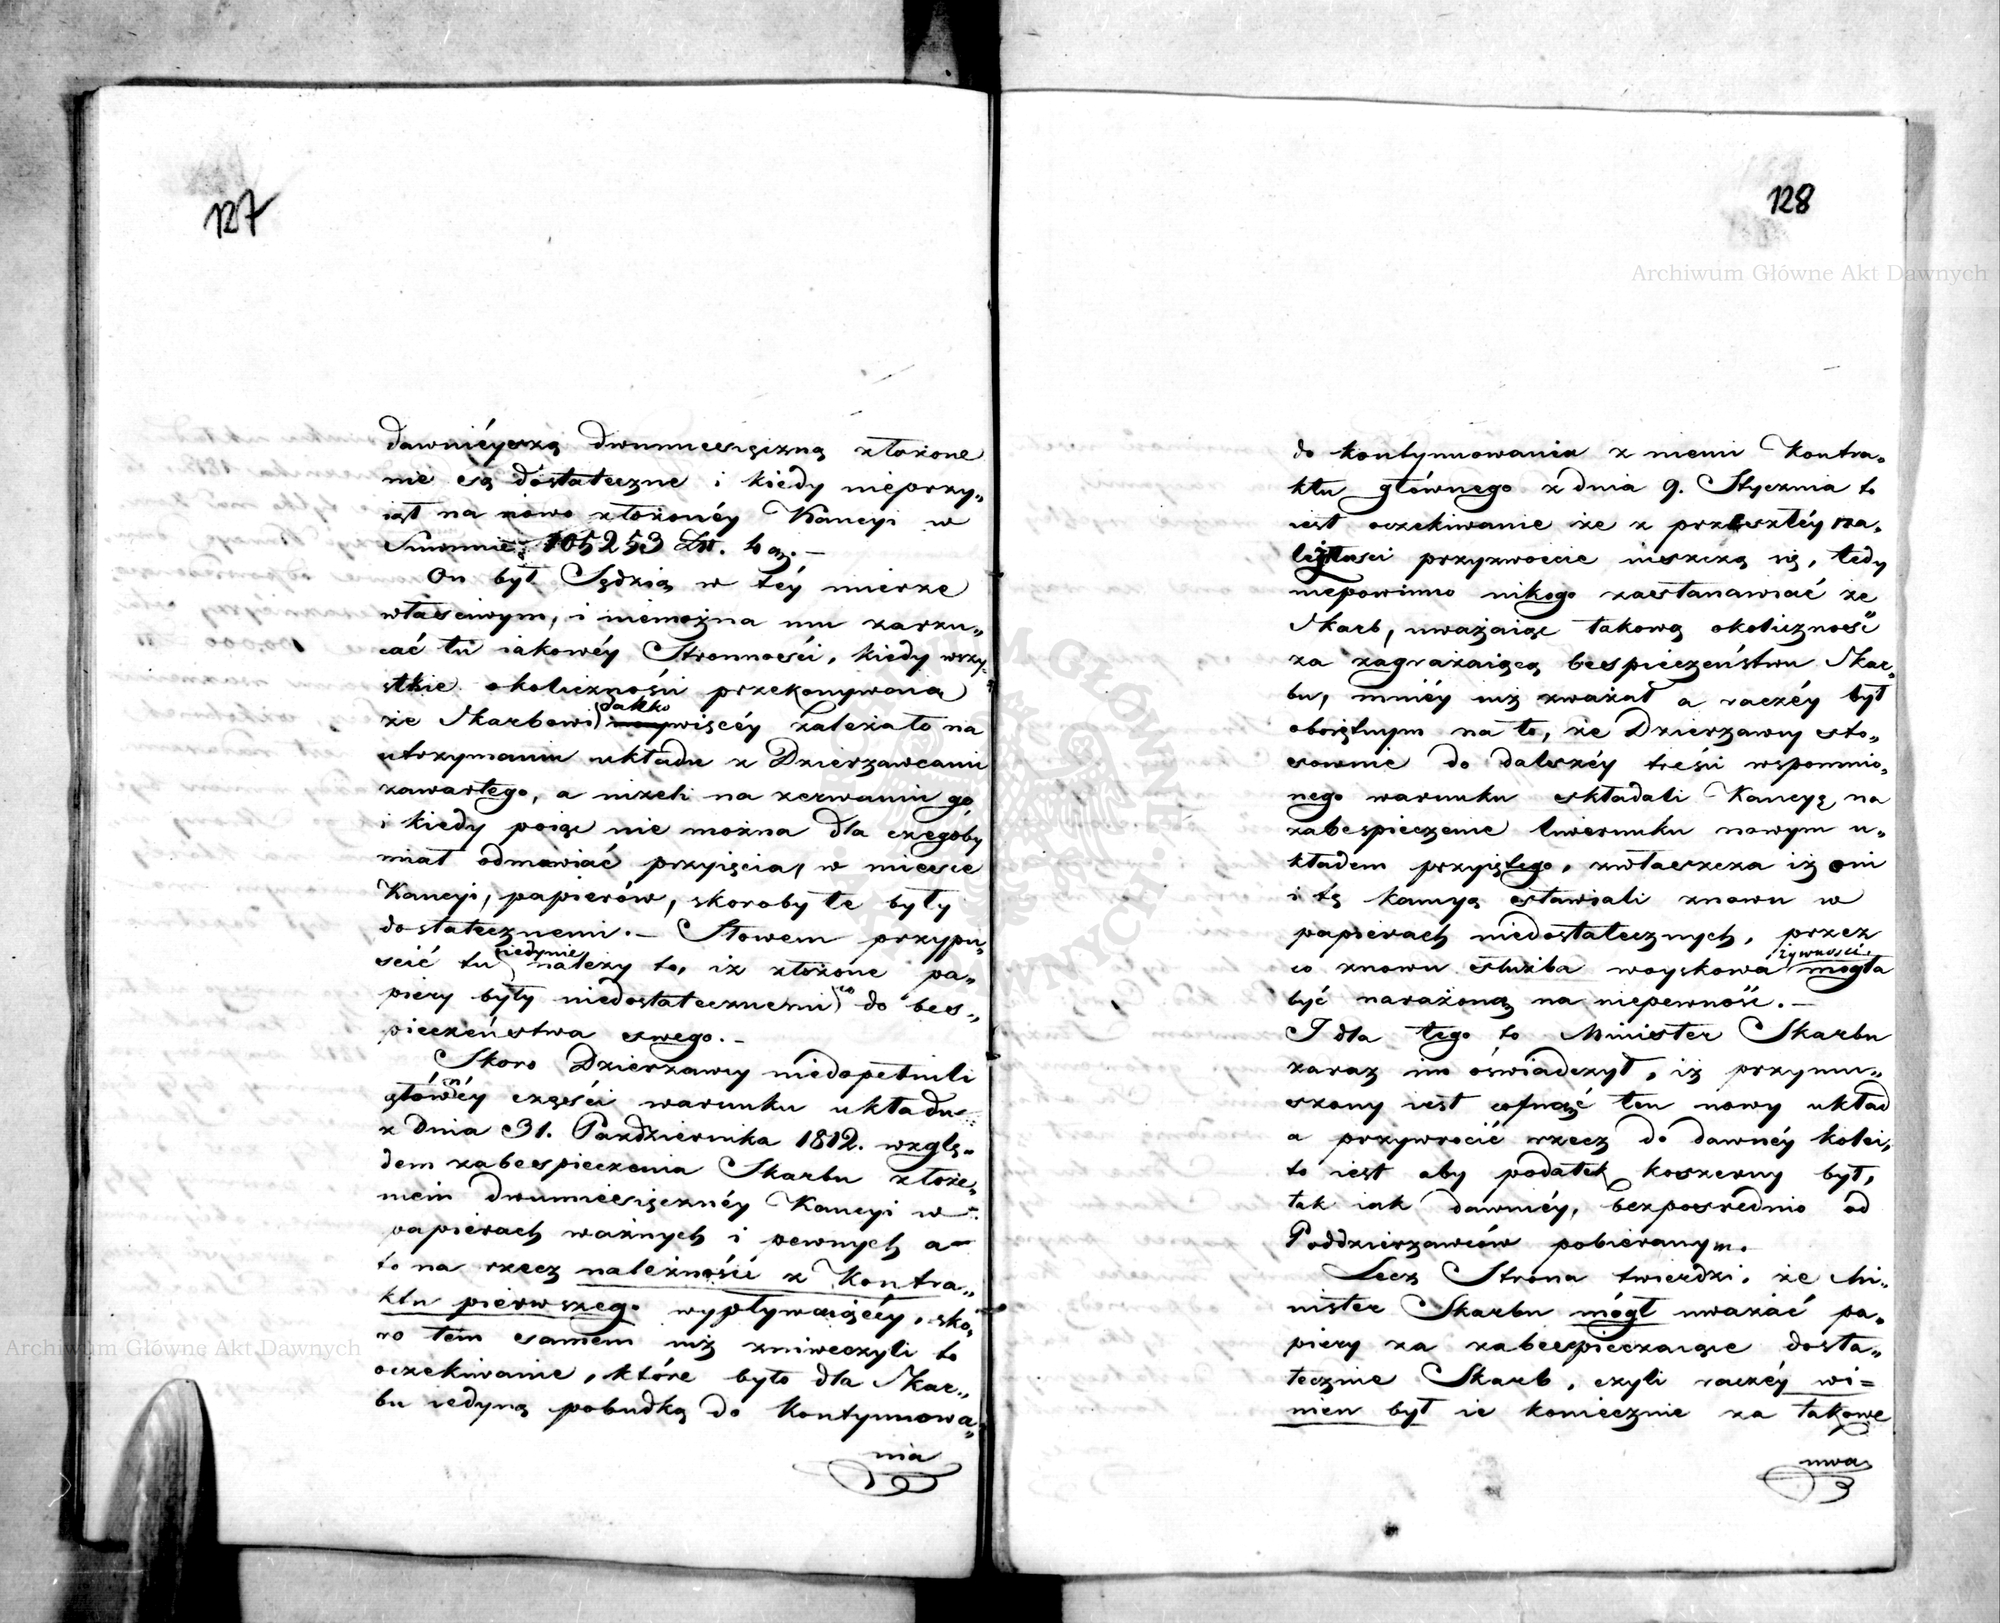 127
dawniéyszą dwumiesięczną złożone
nie są dostateczne i kiedy nieprzy„
iął na nowo złożonéy Kaucyi w
Summie 105253 Zł. 4 g. —
On był Sędzią w téy mierze
właściwym, i niemożna mu zarzu„
cać tu iakowéy Stronności, kiedy wszy„
stkie okoliczności przekonywaią
że Skarbowi dalko więcéy zależało na
utrzymaniu układu z Dzierzawcami
zawartego, a niżeli na zerwaniu go,
i kiedy poiąć nie można dla czegoby
miał odmawiać przyięcia, w miesce
Kaucyi, papierów, skoroby te były
dostatecznemi. — Słowem przypu„
scić tu iedynie należy to, iż złożone pa„
piery były niedostatecznemi co do bes„
pieczeństwa swego. —
Skoro Dzierzawcy niedopełnili
głównéy części warunku układu
z Dnia 31. Pazdziernika 1812. wzglę„
dem zabespieczenia Skarbu złoże„
niem dwumiesięcznéy Kaucyi w
papierach ważnych i pewnych a
to na rzecz należności z Kontra„
ktu pierwszego wypływaiącéy, sko„
ro tem samem iuż zniweczyli to
oczekiwanie, które było dla Skar„
bu iedyną pobudką do Kontynuowa„
nia
128
do kontynuowania z niemi Kontra„
ktu głównego z dnia 9. Stycznia to
iest oczekiwanie że z przeszłéy na„
leżytości przyzwoicie uiszczą się, tedy
niepowinno nikogo zastanawiać że
Skarb, uważaiąc takową okoliczność
za zagrażaiącą bespieczeństwu Skar„
bu, mniéy iuż zważał a raczéy był
oboiętnym na to, że Dzierzawcy sto„
sownie do dalszéy treści wspomnio„
nego warunku składali Kaucyą na
zabespieczenie liwerunku nowym u„
kładem przyiętego, zwłaszcza iż oni
i tę kaucyą stawiali znowu w
papierach niedostatecznych, przez
co znowu służba woyskowa żywności mogła
być narażoną na niepewność. —
I dla tego to Minister Skarbu
zaraz im oświadczył, iż przymu„
szony iest cofnąć ten nowy układ
a przywrócić rzecz do dawnéy kolei,
to iest aby podatek koszerny był,
tak iak dawniéy, bezpośrednio od
Poddzierzawców pobieranym.
Lecz Strona twierdzi, że Mi„
nister Skarbu mógł uważać pa„
piery za zabespieczaiące dosta„
tecznie Skarb, czyli raczéy wi=
nien był ie koniecznie za takowe
uwa„
Archiwum Główne Akt Dawnych
Archiwum Główne Akt Dawnych